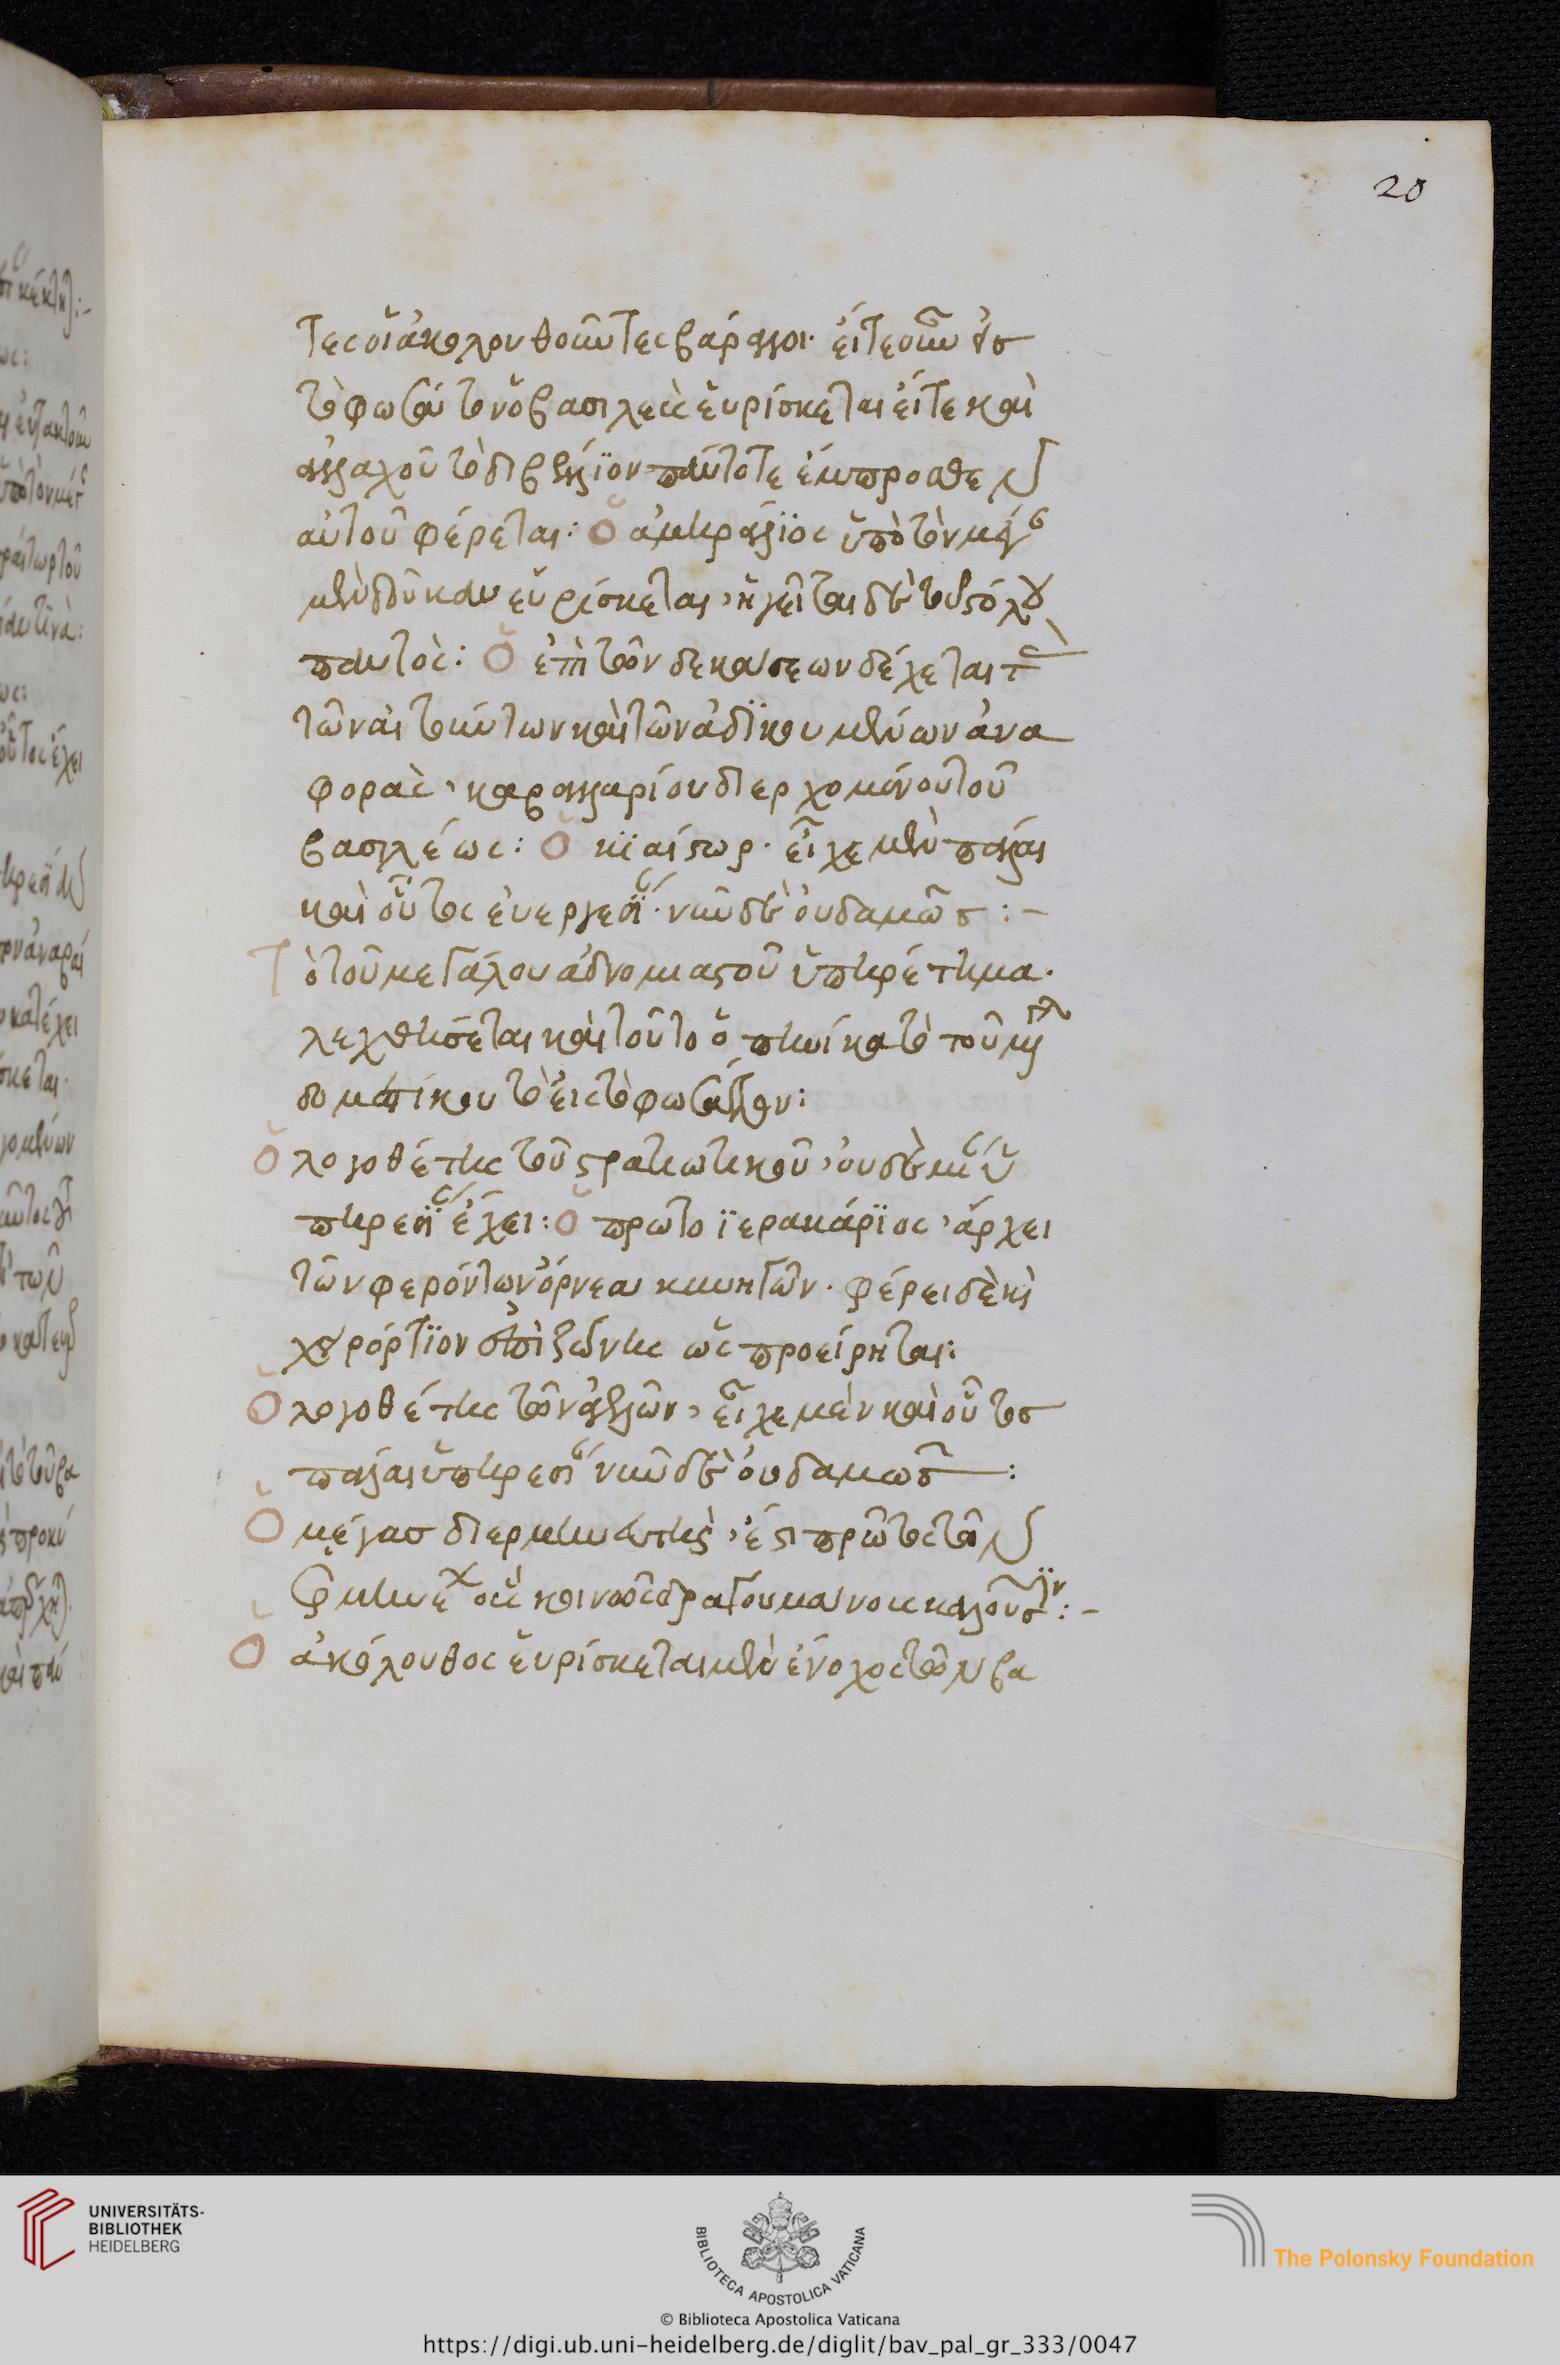 τες οἱ ἀκολουθοῦντες βάραγγοι· εἴτε οὖν εἰς
τὸ φωσάτον ὁ βασιλεὺς εὑρίσκεται εἴτε καὶ
ἀλλαχοῦ τὸ διβέλλϊον πάντοτε ἔμπροσθεν
αὐτοῦ φέρεται: Ὁ ἀμηράλϊος ὑπὸ τὸν μέγαν
μὲν δοῦκαν εὑρίσκεται, ἡγεῖται δὲ τοῦ στόλου
παντὸς: Ὁ ἐπὶ τῶν δεήσεων δέχεται τὰς
τῶν αἰτούντων καὶ τῶν ἀδϊκουμένων ἀνα
φορὰς, καβαλλαρίου διερχομένου τοῦ
βασιλέως: Ὁ κϊαίστωρ· εἶχε μὲν πάλαι
καὶ οὗτος ἐνεργείαν· νῦν δὲ οὐδαμῶς :-
Τὸ τοῦ μεγάλου ἀδνομιαστοῦ ὑπηρέτημα·
λεχθήσεται καὶ τοῦτο ὁπηνίκα τὸ τοῦ μεγάλου
δομεστίκου τὸ εἰς τὸ φωσάτον:
Ὁ λογοθέτης τοῦ στρατιωτικοῦ, οὐδεμίαν ὑ
πηρεσίαν ἔχει: Ὁ πρωτοϊερακάρϊος, ἄρχει
τῶν φερόντων ὄρνεα κυνηγῶν· φέρει δὲ καὶ
χειρόρτϊον ἐπὶ ζώνης ὡς προείρηται:
Ὁ λογοθέτης τῶν ἀγελῶν, εἶχε μὲν καὶ οὗτος
πάλαι ὑπηρεσίαν νῦν δὲ οὐδαμῶς :
Ὁ μέγας διερμηνευτὴς, ἔστι πρῶτος τῶν
ἑρμηνέων οὓς κοινῶς δραγουμάνους καλοῦσϊν :-
Ὁ ἀκόλουθος εὑρίσκεται μὲν ἔνοχος τῶν βα
20
UNIVERSITÄTS-
BIBLIOTHEK
HEIDELBERG
BIBLIOTECA APOSTOLICA VATICANA
The Polonsky Foundation
© Biblioteca Apostolica Vaticana
https://digi.ub.uni-heidelberg.de/diglit/bav_pal_gr_333/0047